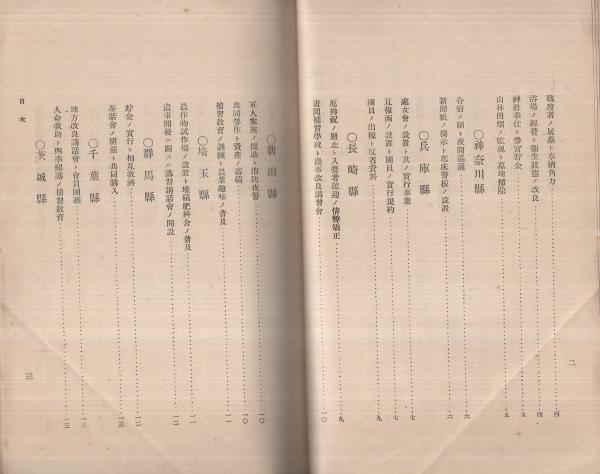 戰歿者ノ展墓ト奉納角力‥‥‥‥四
浴場ノ經營ト衞生狀態ノ改良‥‥‥‥四
神社奉仕ト參宮貯金‥‥‥‥五
山林田畑ノ監視ト墓地掃除‥‥‥‥五
○神奈川縣
合宿ノ制ト夜間巡邏‥‥‥‥六
新聞紙ノ揭示ト起床警板ノ設置‥‥‥‥六
○兵庫縣
處女會ノ設置ト其ノ實行事業‥‥‥‥七
互報函ノ設置ト團員ノ實行規約‥‥‥‥七
團員ノ出稼ト反省資料‥‥‥‥九
○長崎縣
厄拂祝ノ廢止ト入營者送迎ノ情弊矯正‥‥‥‥九
晝間補習學校ト農事改良講習會‥‥‥‥一〇
二
○新潟縣
軍人家族ノ援助ト消防夜警‥‥‥‥一〇
共同勞作ト資產ノ蓄積‥‥‥‥一〇
補習敎育ノ訓練ト農業趣味ノ普及‥‥‥‥一一
○埼玉縣
農作物試作場ノ設置ト堆積肥料舍ノ普及‥‥‥‥一一
農事開發ニ關スル講習講話會ノ開設‥‥‥‥一二
○群馬縣
貯金ノ實行ト相互救濟‥‥‥‥一二
茶話會ノ開催ト共同購入‥‥‥‥一三
○千葉縣
地方改良講話會ト會員團樂‥‥‥‥一三
人命救助ト四季報講ノ補習敎育‥‥‥‥一三
○茨城縣
目次
三